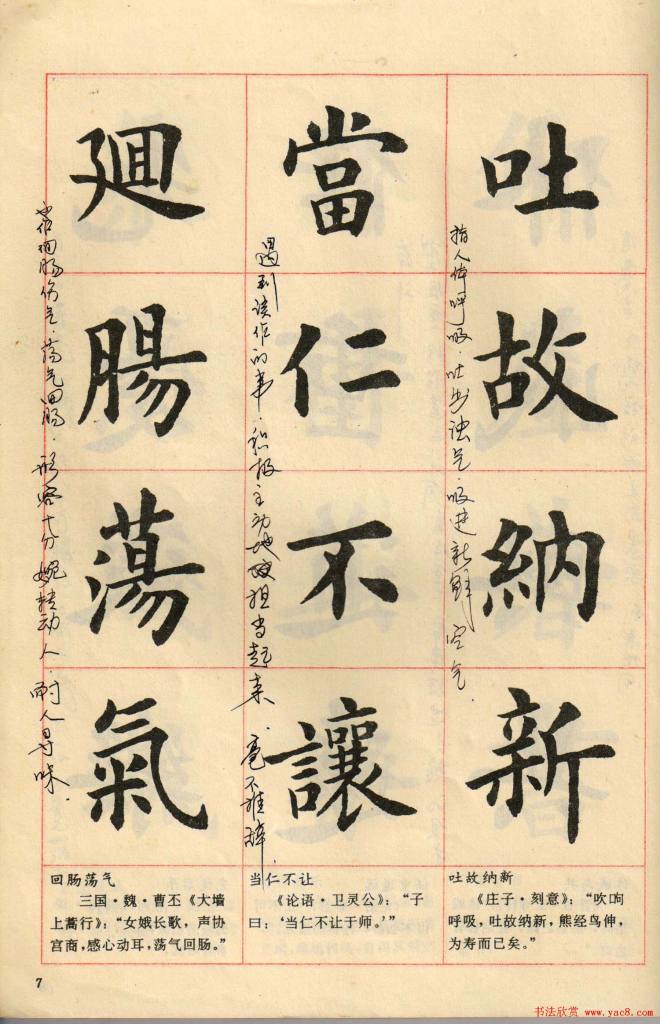 吐故納新
指人体呼吸.吐出浊气.吸进新鲜空气.
當仁不讓
遇到该作的事.积极主动地担当起来.毫不推辞.
廻腸蕩氣
荡气回肠.形容十分婉转动人.耐人寻味.
回肠荡气
三国·魏·曹丕《大墙
上蒿行》：“女娥长歌，声协
宫商，感心动耳，荡气回肠。”
当仁不让
《论语·卫灵公》：“子
曰：‘当仁不让于师。’”
吐故纳新
《庄子·刻意》：“吹呴
呼吸，吐故纳新，熊经鸟伸，
为寿而已矣。”
7
书法欣赏 www.yac8.com